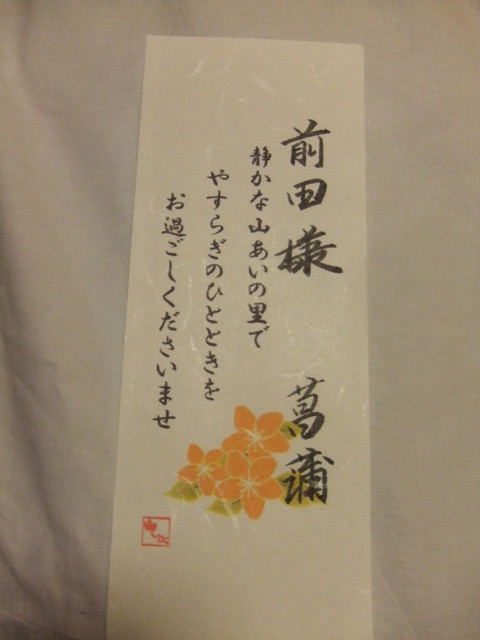 前田様 菖蒲
静かな山あいの里で
やすらぎのひとときを
お過ごしくださいませ